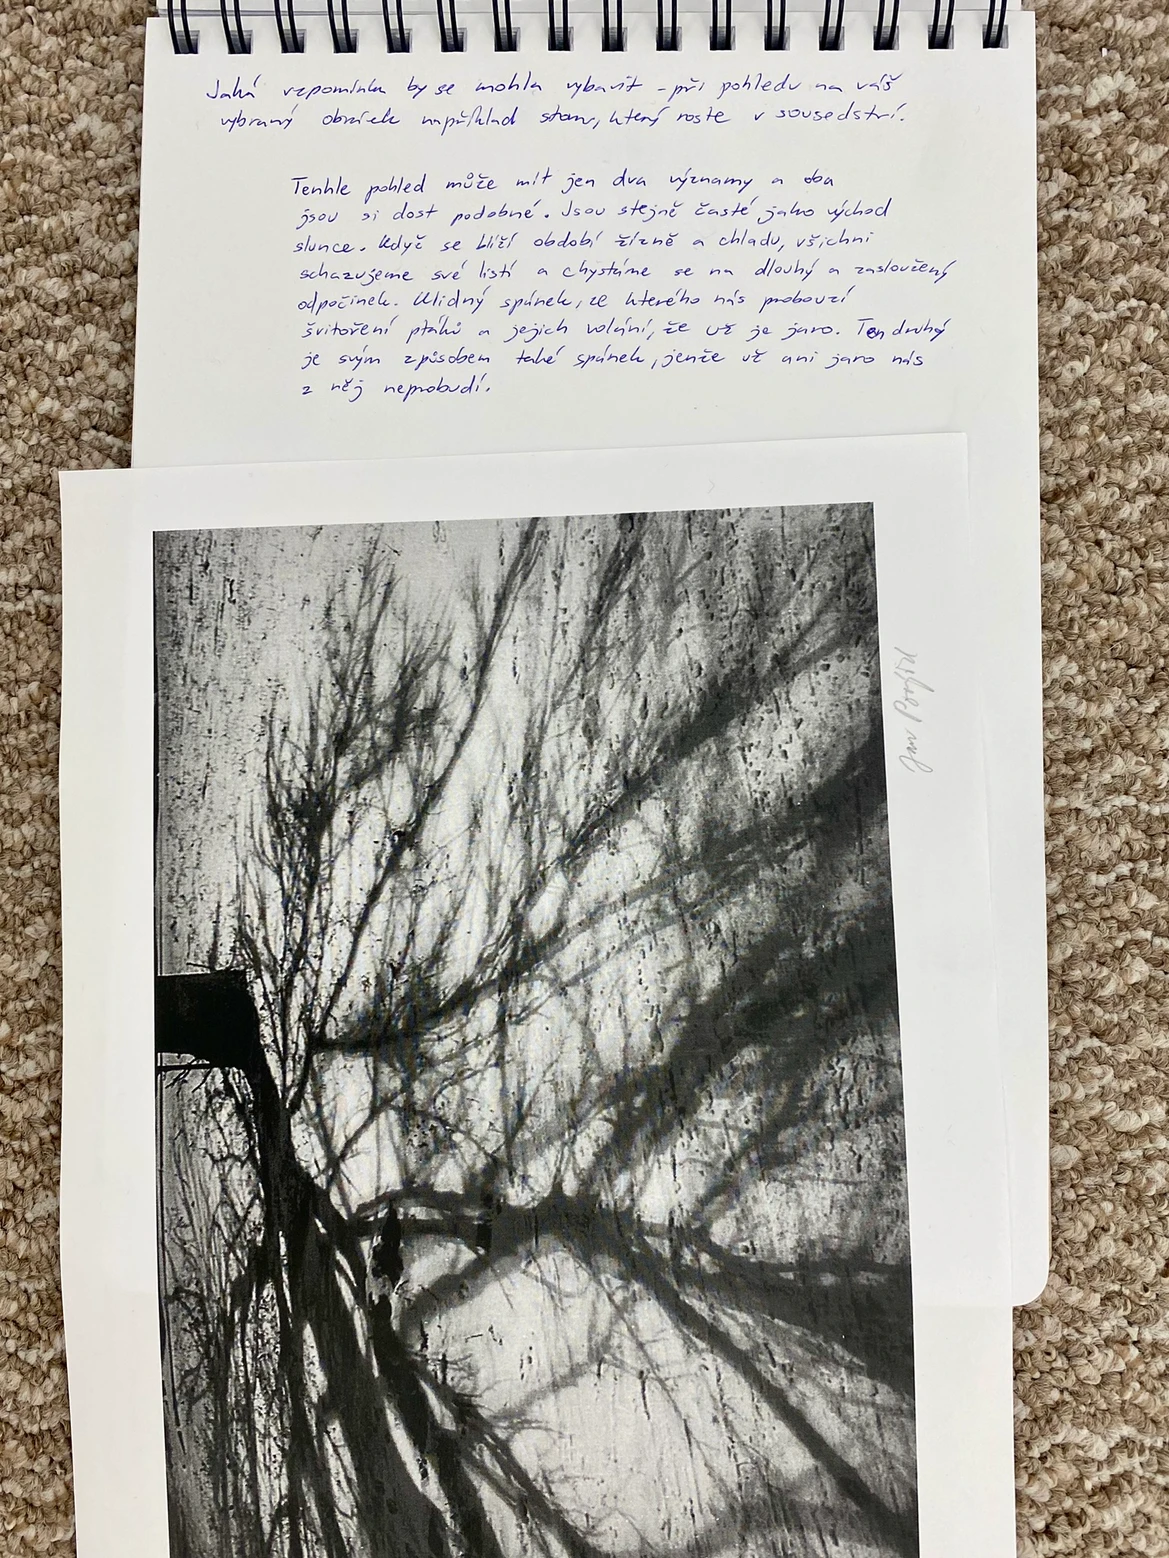 Jaká vzpomínka by se mohla vybavit - při pohledu na váš
vybraný obrázek například strom, který roste v sousedství.
Tenhle pohled může mít jen dva významy a oba
jsou si dost podobné. Jsou stejně časté jako východ
slunce. Když se blíží období žízně a chladu, všichni
schazujeme své listí a chystáme se na dlouhý a zasloužený
odpočinek. Klidný spánek, ze kterého nás probouzí
švitoření ptáků a jejich volání, že už je jaro. Ten druhý
je svým způsobem také spánek, jenže už ani jaro nás
z něj neprobudí.